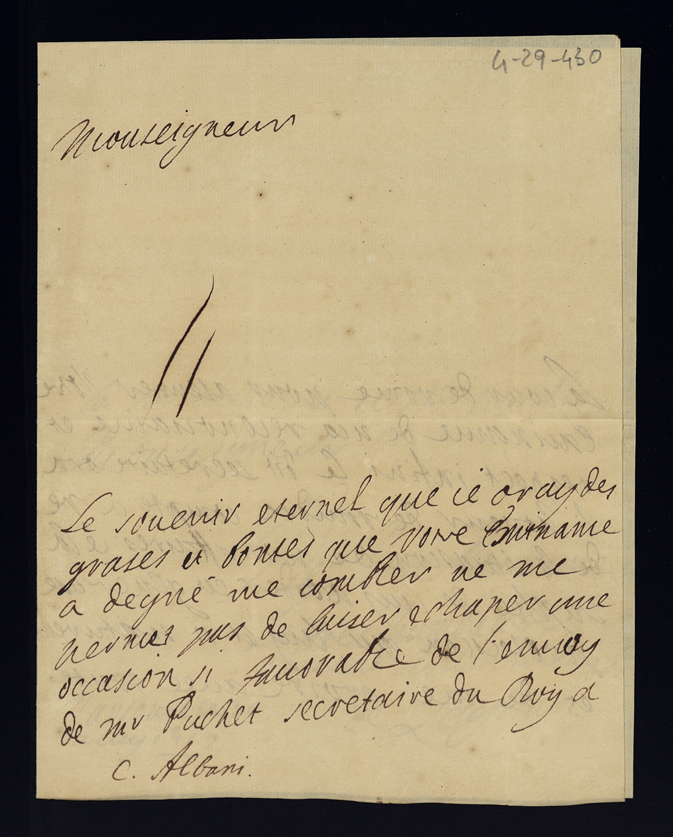 4-29-430
Monseigneur
Le souvenir eternel que ie oray des
grases et bontes que votre Eminanie
a degné me combler ne me
permet pas de laiser echaper une
occasion si fauorable de l'enuoy
de mr Puchet secretaire du Roy a
C. Albani.